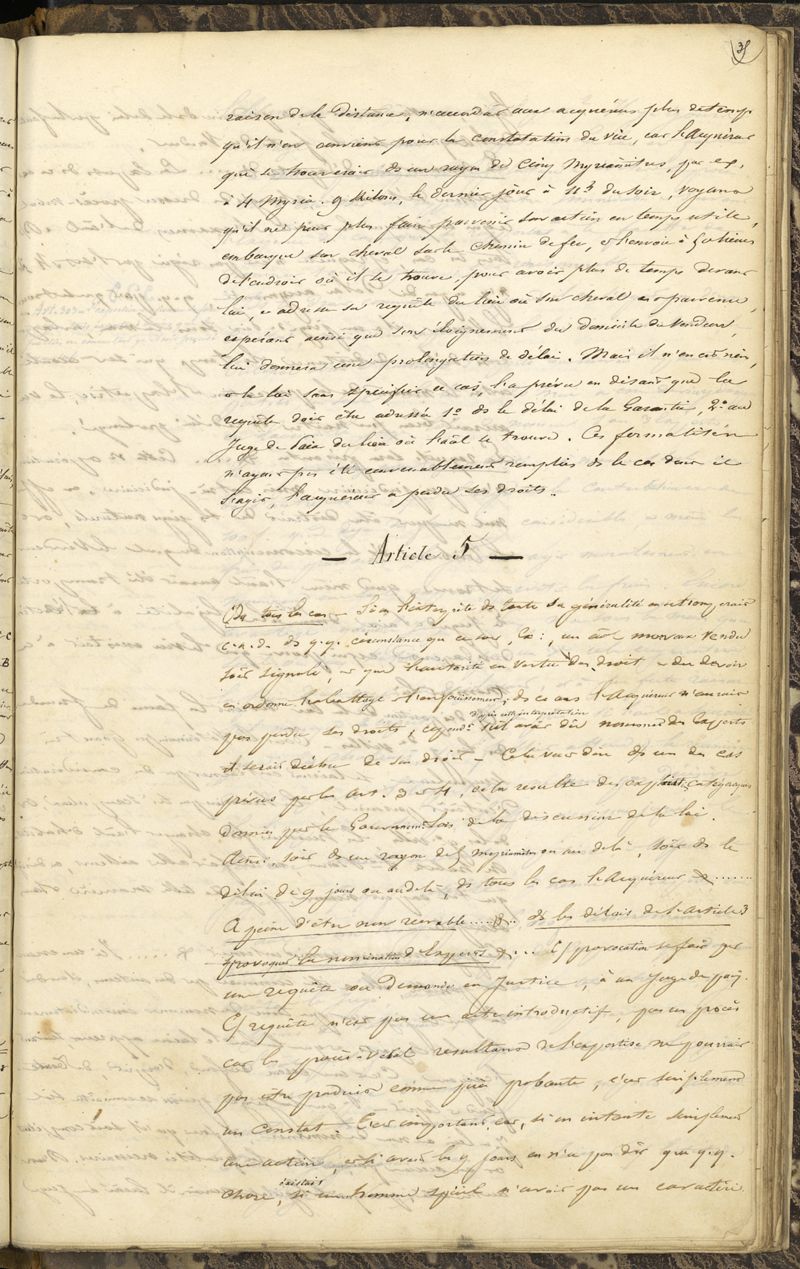 35
raison de la distance, n'accordât aux acquéreurs plus de temps
qu'il n'en convient pour la constatation du vice, car l'Acquéreur
qui se trouverait ds un rayon de Cinq Myriamètres, par ex.
à 4 Myria. 9 Kilom, le dernier jour à 4h du soir, voyant
qu'il ne peut plus faire parvenir son action en temps utile,
embarque son cheval sur le Chemin de fer, et l'envoie à 5 ou 6 lieues
de l'endroit où il le trouve pour avoir plus de temps devant
lui, et adresse sa requête du lieu où son cheval est parvenu,
espérant ainsi que son éloignement du domicile du Vendeur,
lui donnera une prolongation de délai. Mais il n'en est rien,
et la loi sans spécifier ce cas, l'a prévu en disant que la
requête doit être adressée 1º ds le délai de la Garantie, 2º au
Juge de Paix du lieu où l'anl se trouve. Ces formalités
n'ayant pas été convenablement remplies ds le cas dont il
s'agit, l'acquéreur a perdu ses droits.
— Article 5 —
Ds tous les cas — Si on l'interprète ds toute sa généralité on se tromperait
c.a.d. ds q.q. circonstance que ce soit, Ex: un anl morveux vendu
soit signalé, et que l'autorité en vertu du droit et du devoir
en ordonne l'abattage et l'enfouissement; ds ce cas l'Acquéreur n'aurait
pas perdu ses droits, cependt d'après cette interprétation il avait dû nommer des Experts
et serait déchu de son droit — Cela veut dire ds un des cas
prévus par les art. 3 et 4, cela résulte des explicat. catégoriques
données par le Gouvernemt lors de la discussion de la loi.
Ainsi, soit ds un rayon de 5 myriamètres ou au delà, soit ds le
délai de 9 jours ou au delà, ds tous les cas l'Acquéreur &.......
A peine d'être non recevable..... &.. ds les délais de l'article 3
provoquer la nomination d'experts &... Cette provocation se fait par
une requête ou Demande en Justice, à un Juge de paix.
Cette requête n'est pas un acte introductif, pas un procès
car le procès-verbal résultant de l'expertise ne pourrait
pas être produit comme pièce probante, c'est simplement
un Constat — C'est important, car, si on intente simplement
une action, et si avant les 9 jours on n'a pas dit que q.q.
chose existait, si un homme spécial n'avait pas un caractère